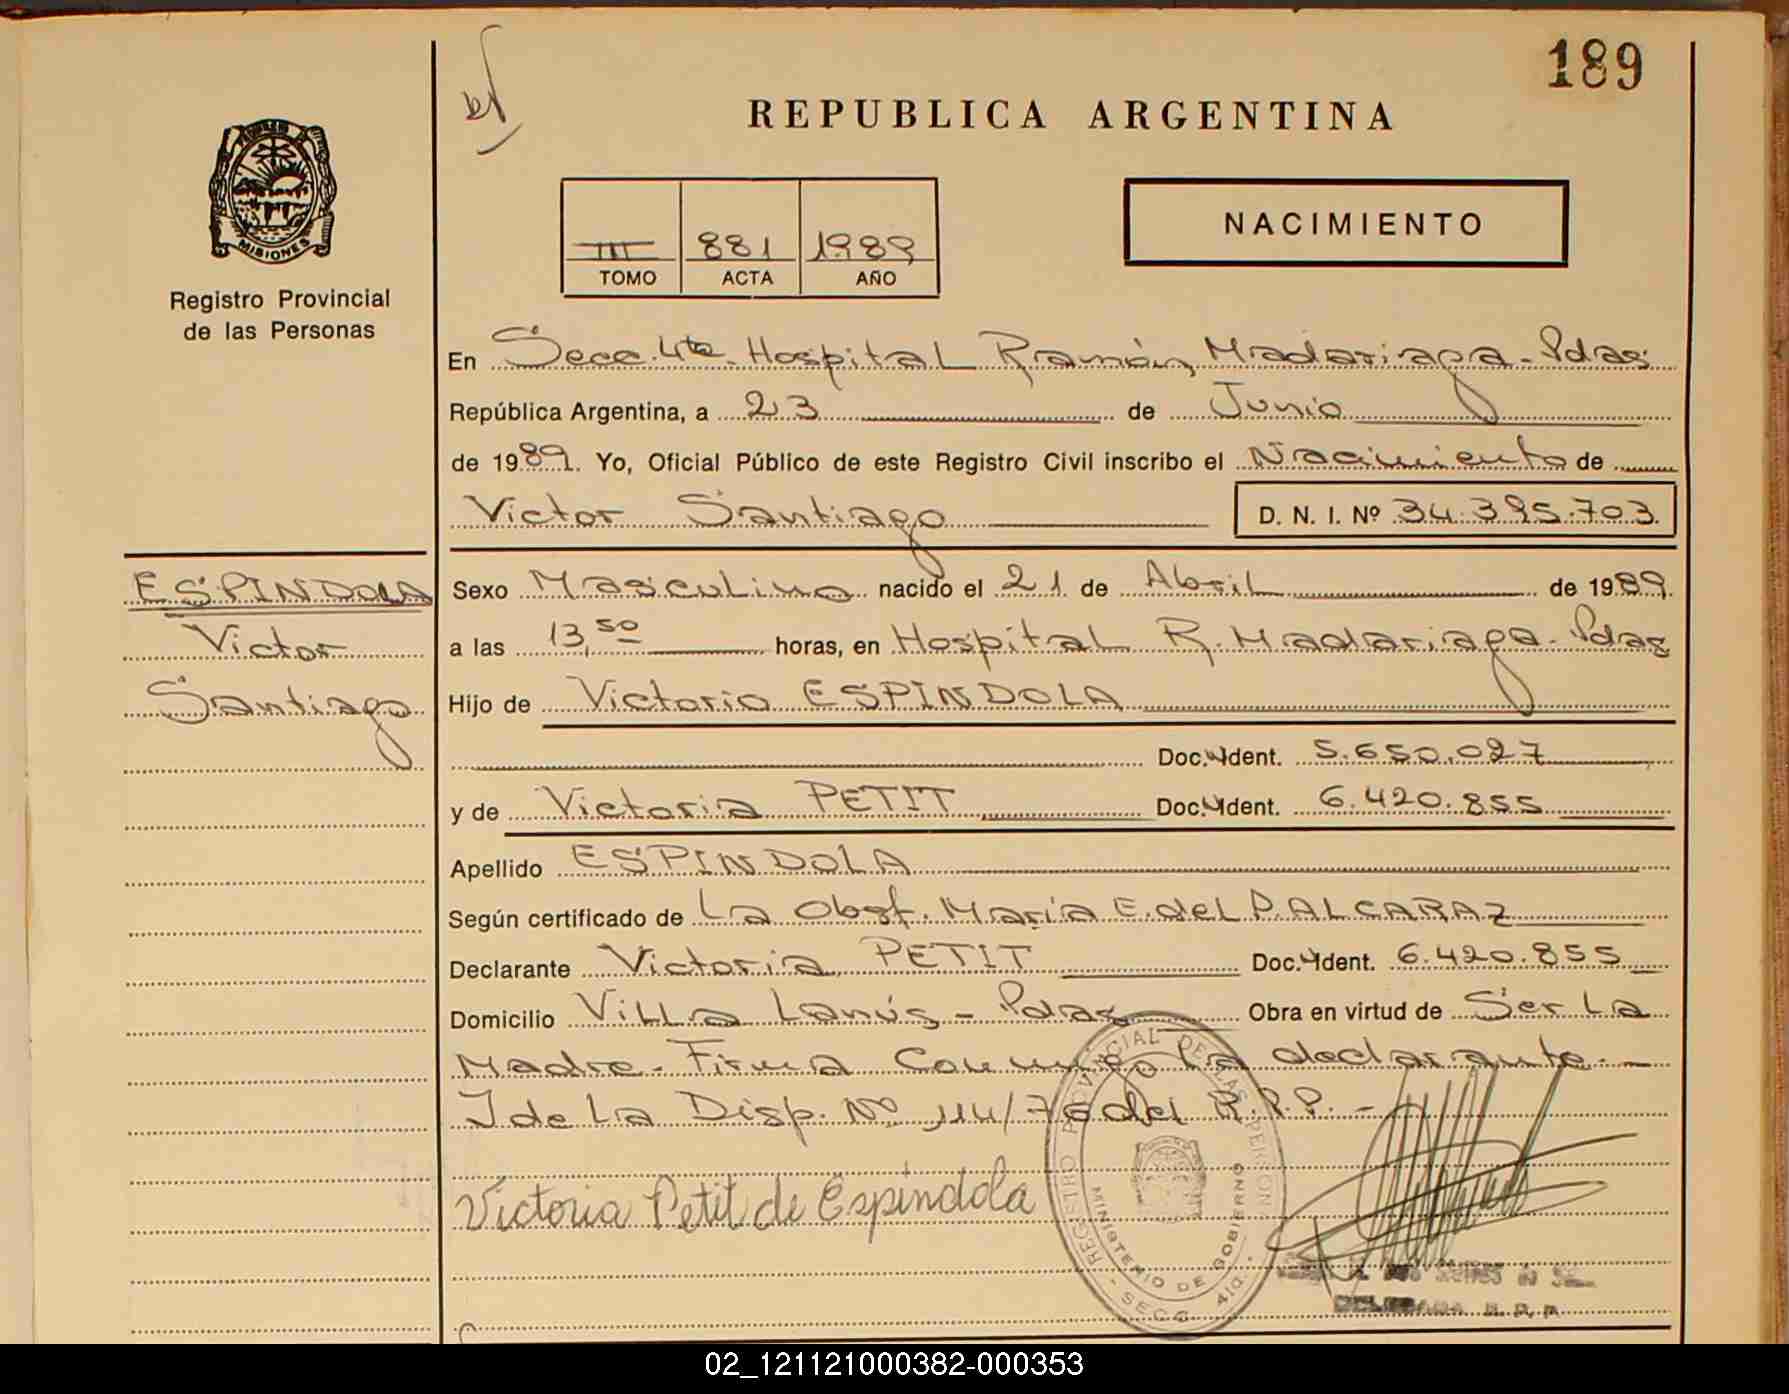 189
REPUBLICA ARGENTINA
MISIONES
Registro Provincial
de las Personas
III 881 1989
TOMO ACTA AÑO
NACIMIENTO
En Secc. 4ta. Hospital Ramón Madariaga - Pdas
República Argentina, a 23 de Junio
de 1989. Yo, Oficial Público de este Registro Civil inscribo el Nacimiento de
Victor Santiago D. N. I. Nº 34.395.703
ESPINDOLA
Victor
Santiago
Sexo Masculino nacido el 21 de Abril de 1989.
a las 13,50 horas, en Hospital R. Madariaga - Pdas
Hijo de Victorio ESPINDOLA
Doc. Ident. 5.650.027
y de Victoria PETIT Doc. Ident. 6.420.855
Apellido ESPINDOLA
Según certificado de La Obst. María E. del P. ALCARAZ
Declarante Victoria PETIT Doc. Ident. 6.420.855
Domicilio Villa Lanús - Pdas Obra en virtud de Ser La
Madre. Firma Conmigo la declarante. -
I de La Disp. Nº 114/76 del R.P.P. -
Victoria Petit de Espíndola
REGISTRO PROVINCIAL DE LAS PERSONAS
MINISTERIO DE GOBIERNO
SECC. 4ta.
02_121121000382-000353